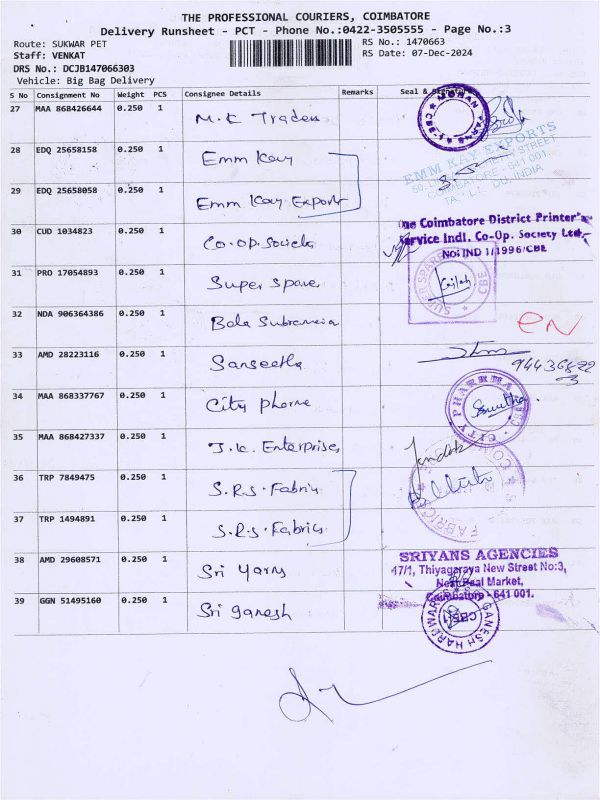 THE PROFESSIONAL COURIERS, COIMBATORE
Delivery Runsheet - PCT - Phone No.:0422-3505555 - Page No.:3
Route: SUKWAR PET
Staff: VENKAT
DRS No.: DCJB147066303
Vehicle: Big Bag Delivery
RS No.: 1470663
RS Date: 07-Dec-2024
S No Consignment No Weight PCS Consignee Details Remarks Seal &
27 MAA 868426644 0.250 1 M.K Traders
28 EDQ 25658158 0.250 1 Emm Kay
29 EDQ 25658058 0.250 1 Emm Kay. Export
EMM KAY EXPORTS
COIMBATORE - 641 001.
30 CUD 1034823 0.250 1 Co-op. Society
The Coimbatore District Printer's
Service Indl. Co-Op. Society Ltd.,
No: IND 1/1996/CBE
31 PRO 17054893 0.250 1 Super Spare
SUPER SPARE CBE
32 NDA 906364386 0.250 1 Bala
EN
33 AMD 28223116 0.250 1 Sangeetha
34 MAA 868337767 0.250 1 City Pharma
CITY PHARMA
35 MAA 868427337 0.250 1 J.K. Enterprises
36 TRP 7849475 0.250 1 S.R.S. Fabric
37 TRP 1494891 0.250 1 S.R.S. Fabrics
38 AMD 29608571 0.250 1 Sri Yarns
SRIYANS AGENCIES
47/1, Thiyagaraya New Street No:3,
Near Real Market,
Coimbatore - 641 001.
39 GGN 51495160 0.250 1 Sri ganesh
GANESH HARDWARE